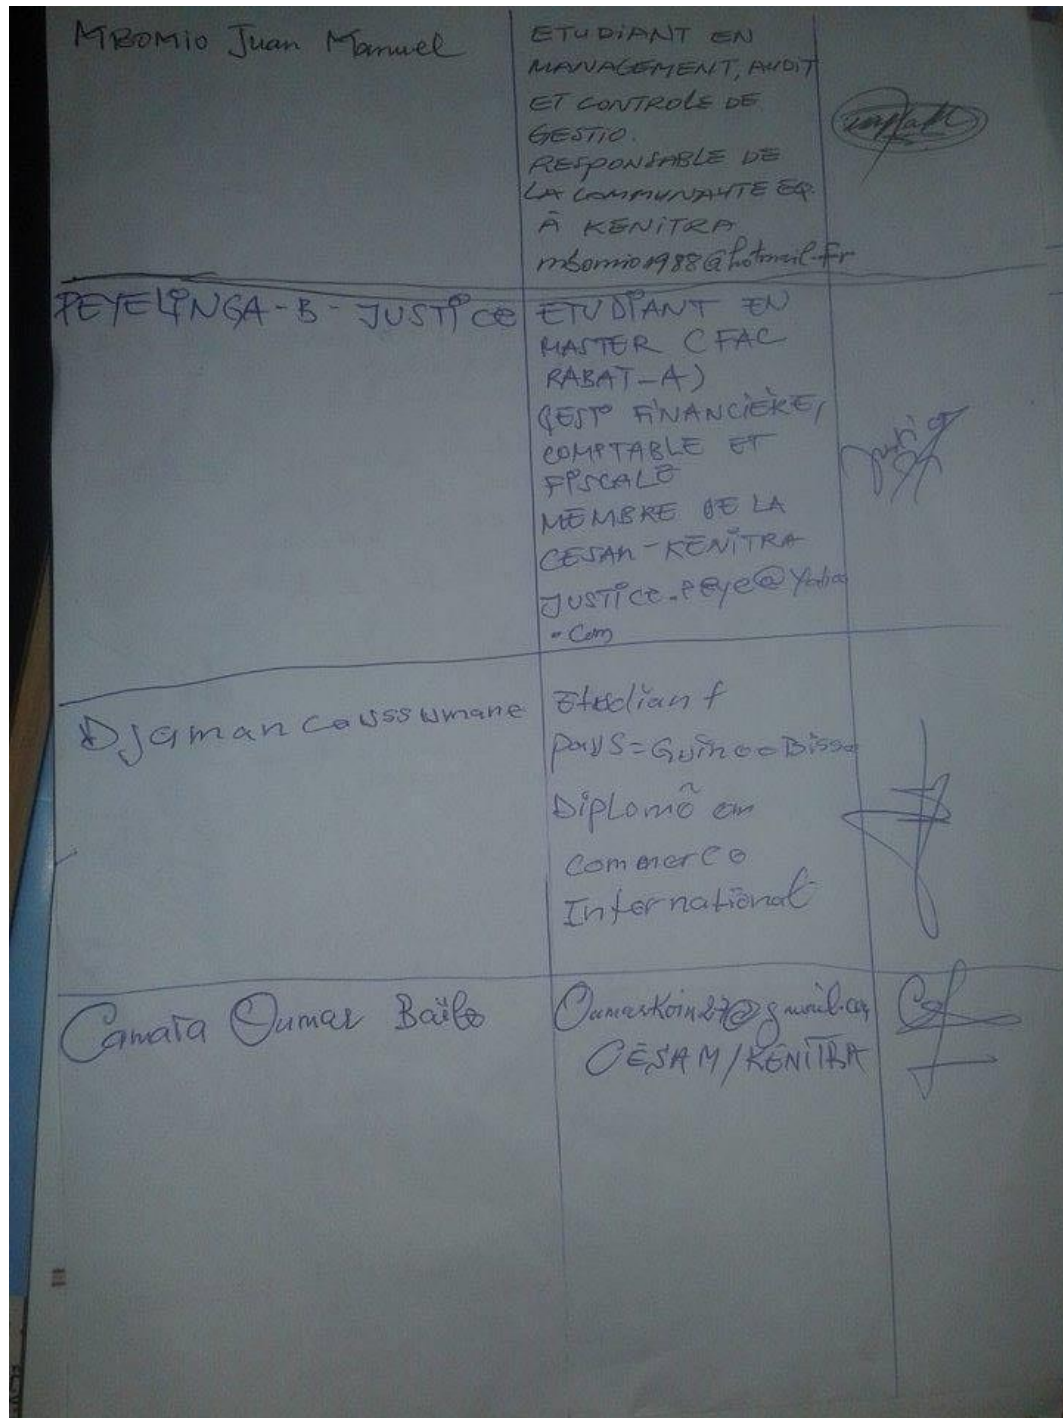 MBOMIO Juan Manuel
ETUDIANT EN
MANAGEMENT, AUDIT
ET CONTROLE DE
GESTIO.
RESPONSABLE DE
LA COMMUNAUTE EQ.
À KENITRA
mbomio1988@hotmail.fr
PEYELINGA-B-JUSTICE
ETUDIANT EN
MASTER CFAC
RABAT-A)
GEST° FINANCIÈRE,
COMPTABLE ET
FISCALE
MEMBRE DE LA
CESAM-KENITRA
JUSTICE.PEYE@Yahoo
.Com
Djaman coussumane
Etudiant
pays=Guinee Bissa
Diplomé en
commerce
International
Camara Oumar Baïlo
Oumarkoin27@gmail.com
CESAM/KENITRA